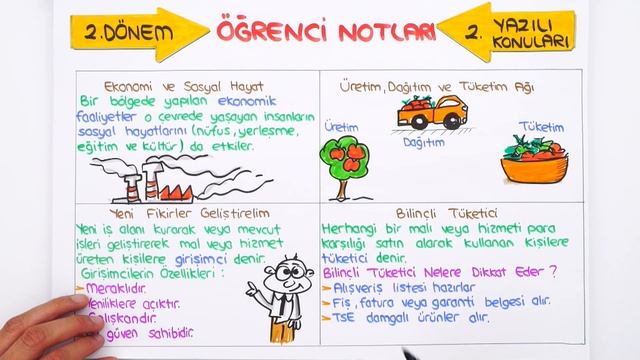 2. DÖNEM
ÖĞRENCİ NOTLARI
2. YAZILI
KONULARI
Ekonomi ve Sosyal Hayat
Bir bölgede yapılan ekonomik
faaliyetler o çevrede yaşayan insanların
sosyal hayatlarını (nüfus, yerleşme,
eğitim ve kültür) da etkiler.
Üretim, Dağıtım ve Tüketim Ağı
Üretim
Dağıtım
Tüketim
Yeni Fikirler Geliştirelim
Yeni iş alanı kurarak veya mevcut
işleri geliştirerek mal veya hizmet
üreten kişilere girişimci denir.
Girişimcilerin Özellikleri :
Meraklıdır.
Yeniliklere açıktır.
Çalışkandır.
güven sahibidir.
Bilinçli Tüketici
Herhangi bir malı veya hizmeti para
karşılığı satın alarak kullanan kişilere
tüketici denir.
Bilinçli Tüketici Nelere Dikkat Eder ?
Alışveriş listesi hazırlar
Fiş, fatura veya garanti belgesi alır.
TSE damgalı ürünler alır.